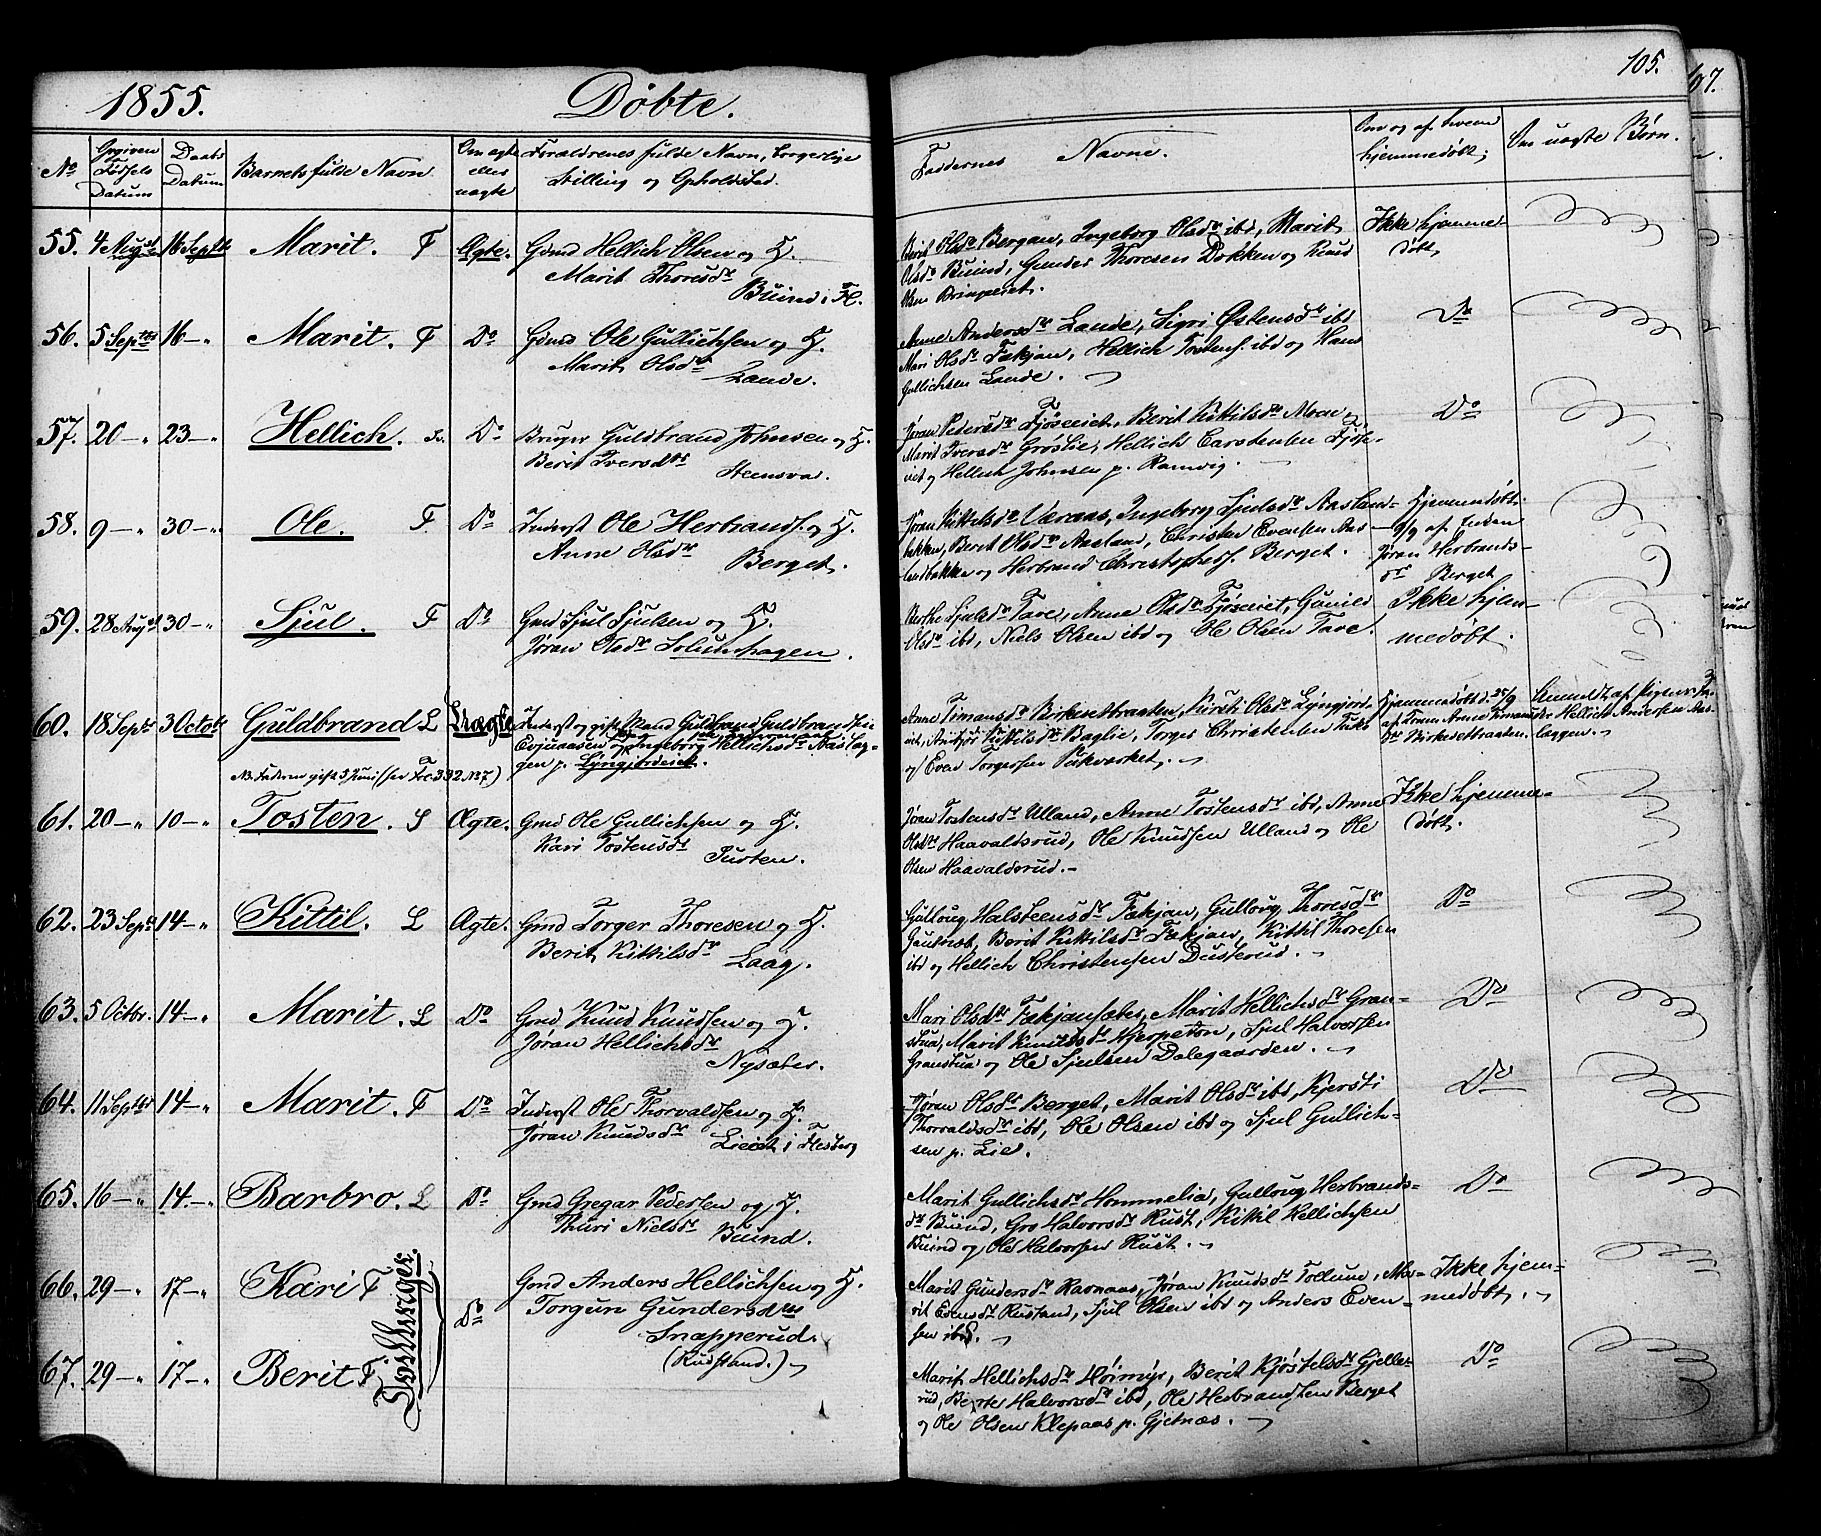 1855. Døbte. 105.
107.
No
Opgiven Fødsels Datum
Daabs Datum
Barnets fulde Navn.
Om ægte eller uægte
Forældrenes fulde Navn, borgerlige Stilling og Opholdsted.
Faddernes Navne.
Om og af hvem hjemmedøbt;
Om uægte Børn.
55. 4 August 16 Septb Marit. F Ægte. Gmd Hellich Olsen og H.
Marit Thoresdr
Buind i Fl.
Berit Olsdr Bergan, Ingeborg Olsdr ibd, Marit
Olsdr Buind, Gunder Thoresen Dokken og Knud
Olsen
Ikke hjemme-
døbt,
56. 5 Septbr 16 — " Marit. F Do Gmd Ole Gullichsen og H.
Marit Olsdr
Lande.
Anne Andersdr Lande, Sigri Østensdr ibd
Mari Olsdr Fækjan, Hellich Tostens. ibd og Hans
Gullichsen Lande.
Do
57. 20 — " 23 — " Hellich. Do Bruger Guldbrand Johnsen og H.
Berit Iversdtr
Steensva.
Jøran Pedersdr Fjøseiet, Berit Kittilsdr Moen
Marit Iversdr Grøslie, Hellich Carstensen Fjøse-
iet og Hellich Johnsen p. Ramvig.
Do
58. 9 — " 30 — " Ole. F Do Inderst Ole Herbrands. og H.
Anne Olsdr
Berget.
Jøran Kittilsdr Væraas, Ingeborg Sjulsdr Aasland-
bakken, Berit Olsdr Aasland, Christen Evensen Aas-
landbakken og Herbrand Christophers. Berget.
Hjemmedøbt
9/9 af Enken
Jøran Herbrands-
dr Berget
59. 28 August 30 — " Sjul. F Do Gmd Sjul Sjulsen og H.
Jøran Olsdr Solumshagen.
Berthe Sjulsdr Tave, Anne Olsdr Fjøseiet, Gunild
Olsdr ibd, Niels Olsen ibd og Ole Olsen Tave.
Ikke hjem-
medøbt.
60. 18 Septbr 3 Octobr Guldbrand L Uægte Inderst og gift Mand Guldbrand Guldbrandsen
Evjuaasen og Pige Ingeborg Hellichsdr Aaslag-
gen p. Lyngjordeiet.
NB. Faderen gift 3 Juni (see
Anne Timansdr Birkesetbraaten, Kirsti Olsdr Lyngjord-
eiet, Kittilsdr Baglie, Torger Christensen
og Even Torgersen
Hjemmedøbt d. 25/9
af Konen Anne Timans-
dr Birkesetbraaten.
Anmeldt af Pigens Fa-
der Hellich Andersen Aas-
laggen.
61. 20 — " 10 — " Tosten. S Ægte. Gmd Ole Gullichsen og H.
Kari Tostensdr
Tusten.
Jøran Tostensdr Ulland, Anne Tostensdr ibd, Anne
Olsdr Haavaldsrud, Ole Knudsen Ulland og Ole
Olsen Haavaldsrud.
Ikke hjemme-
døbt.
62. 23 Septbr 14 — " Kittil. L Ægte. Gmd Torger Thoresen og H.
Berit Kittilsdr
Laag.
Gulloug Halsteensdr Fækjan, Gulloug Thoresdr
Berit Kittilsdr Fækjan, Kittil Thoresen
ibd og Hellich Christensen Dusterud.
Do
63. 5 Octbr. 14 — " Marit. L Do Gmd Knud Knudsen og H.
Jøran Hellichsdr
Nysæter.
Mari Olsdr Fækjansæter, Marit Hellichsdr Gran-
stua, Marit Knudsdr Sjul Halvorsen
Granstua og Ole Sjulsen Dalegaarden.
Do
64. 11 Septbr 14 — " Marit. F Do Inderst Ole Thorvaldsen og H.
Jøran Knudsdr
Lieeiet i Flesberg
Jøran Olsdr Berget, Marit Olsdr ibd, Kjersti
Thorvaldsdr ibd, Ole Olsen ibd og Sjul Gullich-
sen p. Lie.
Do
65. 16 — " 14. — " Barbro. L Do Gmd Gregar Pedersen og H.
Thuri Nielsdr
Buind.
Marit Gullichsdr Hommelia, Gulloug Herbrands-
dr Buind, Gro Halvorsdr Rust, Kittil Hellichsen
Buind og Ole Halvorsen Rust.
Do
66. 29 — " 17 — " Kari F Do Gmd Anders Hellichsen og H.
Torgun Gundersdtr
Snapperud.
(Rudstand.)
Marit Gundersdr Ravnaas, Jøran Knudsdr Tollund, Ma-
rit Evensdr Rustand, Sjul Olsen ibd og Anders Even-
sen ibd.
Ikke hjem-
medøbt.
67. 29 — " 17 — " Berit F.
Tvillinger.
Marit Hellichsdr Høimyr, Berit Kjøstelsdr Gjelle-
rud, Berte Halvorsdr ibd, Ole Herbrandsen Berget
og Ole Olsen Klepaas p. Gjetnæs.
Do